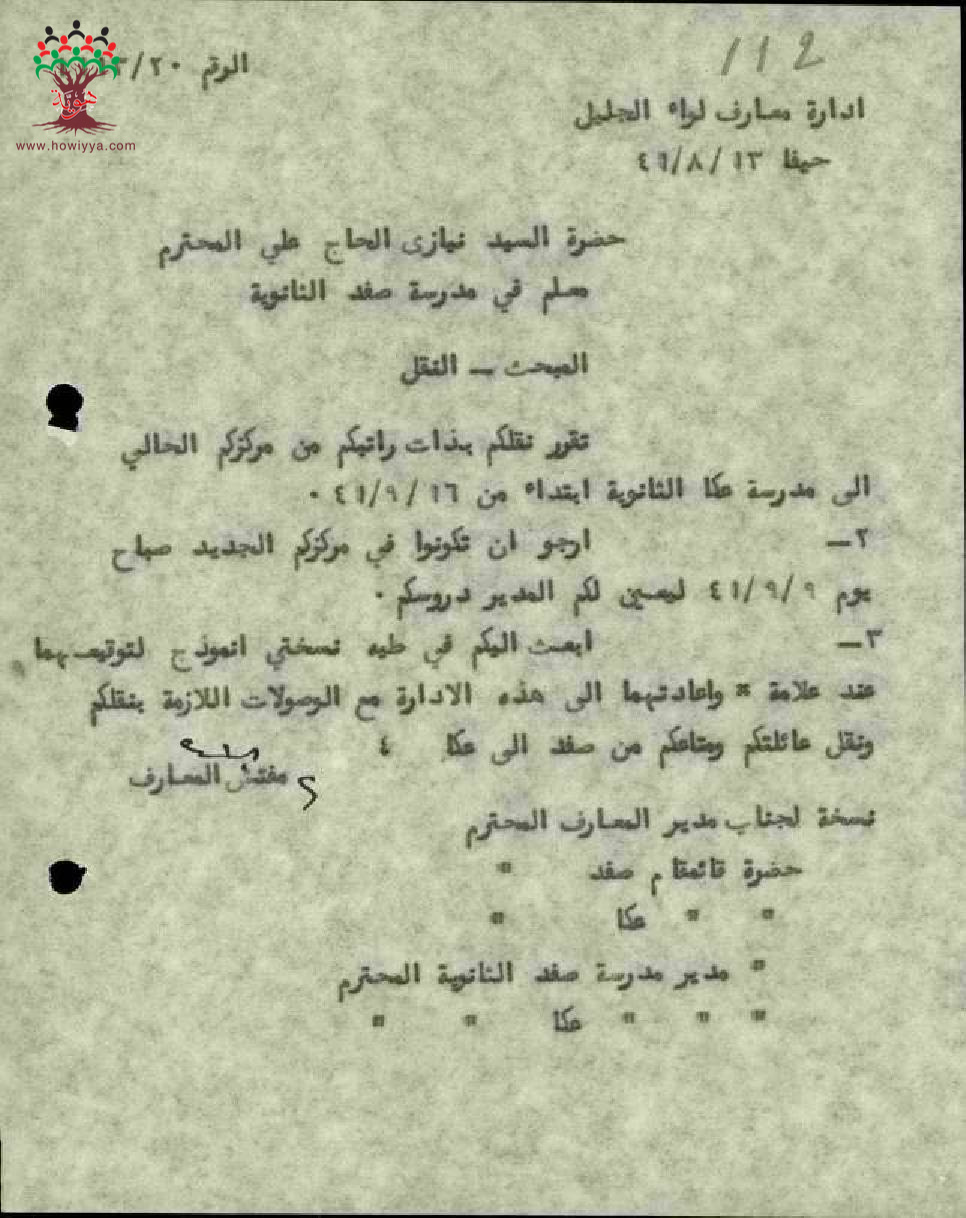 112
الرقم ٢٠/
هوية
www.howiyya.com
ادارة معارف لواء الجليل
حيفا ١٣/٨/٤١
حضرة السيد نيازى الحاج علي المحترم
معلم في مدرسة صفد الثانوية
المبحث — النقل
تقرر نقلكم بذات راتبكم من مركزكم الحالي
الى مدرسة عكا الثانوية ابتداء من ١٦/٩/٤١ ٠
٢— ارجو ان تكونوا في مركزكم الجديد صباح
يوم ٩/٩/٤١ ليعين لكم المدير دروسكم ٠
٣— ابعث اليكم في طيه نسختي انموذج لتوقيعهما
عند علامة * واعادتهما الى هذه الادارة مع الوصولات اللازمة بنقلكم
ونقل عائلتكم ومتاعكم من صفد الى عكا ٤
مفتش المعارف
نسخة لجناب مدير المعارف المحترم
حضرة قائمقام صفد "
" " عكا "
" مدير مدرسة صفد الثانوية المحترم
" " " عكا " "